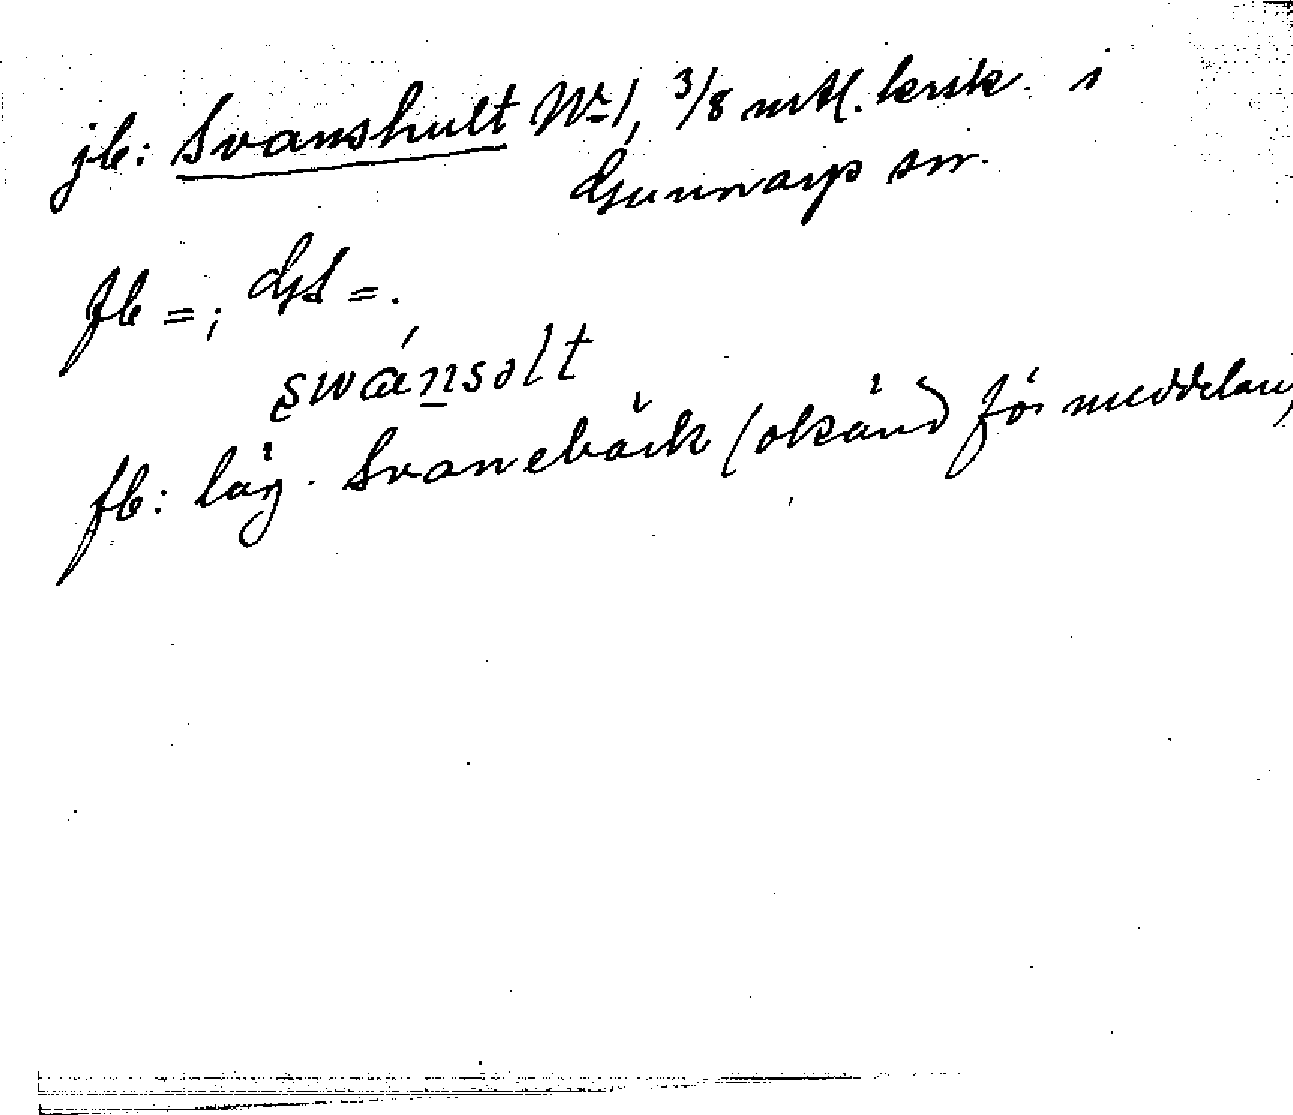 jb: Svanshult No 1, 3/8 mtl. krik. i
Gunnarp sn.
fb =; GS =.
swánsolt
fb: läg. Svanebäck (okänd för meddelan,